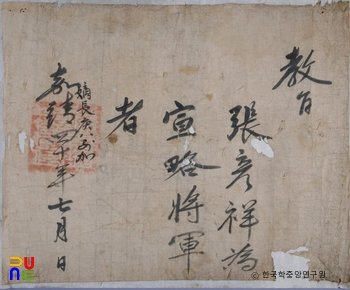 教旨
張彦祥為
宣略將軍
者
嘉靖四十年七月 日
嫡長庚八加
ⓒ 한국학중앙연구원